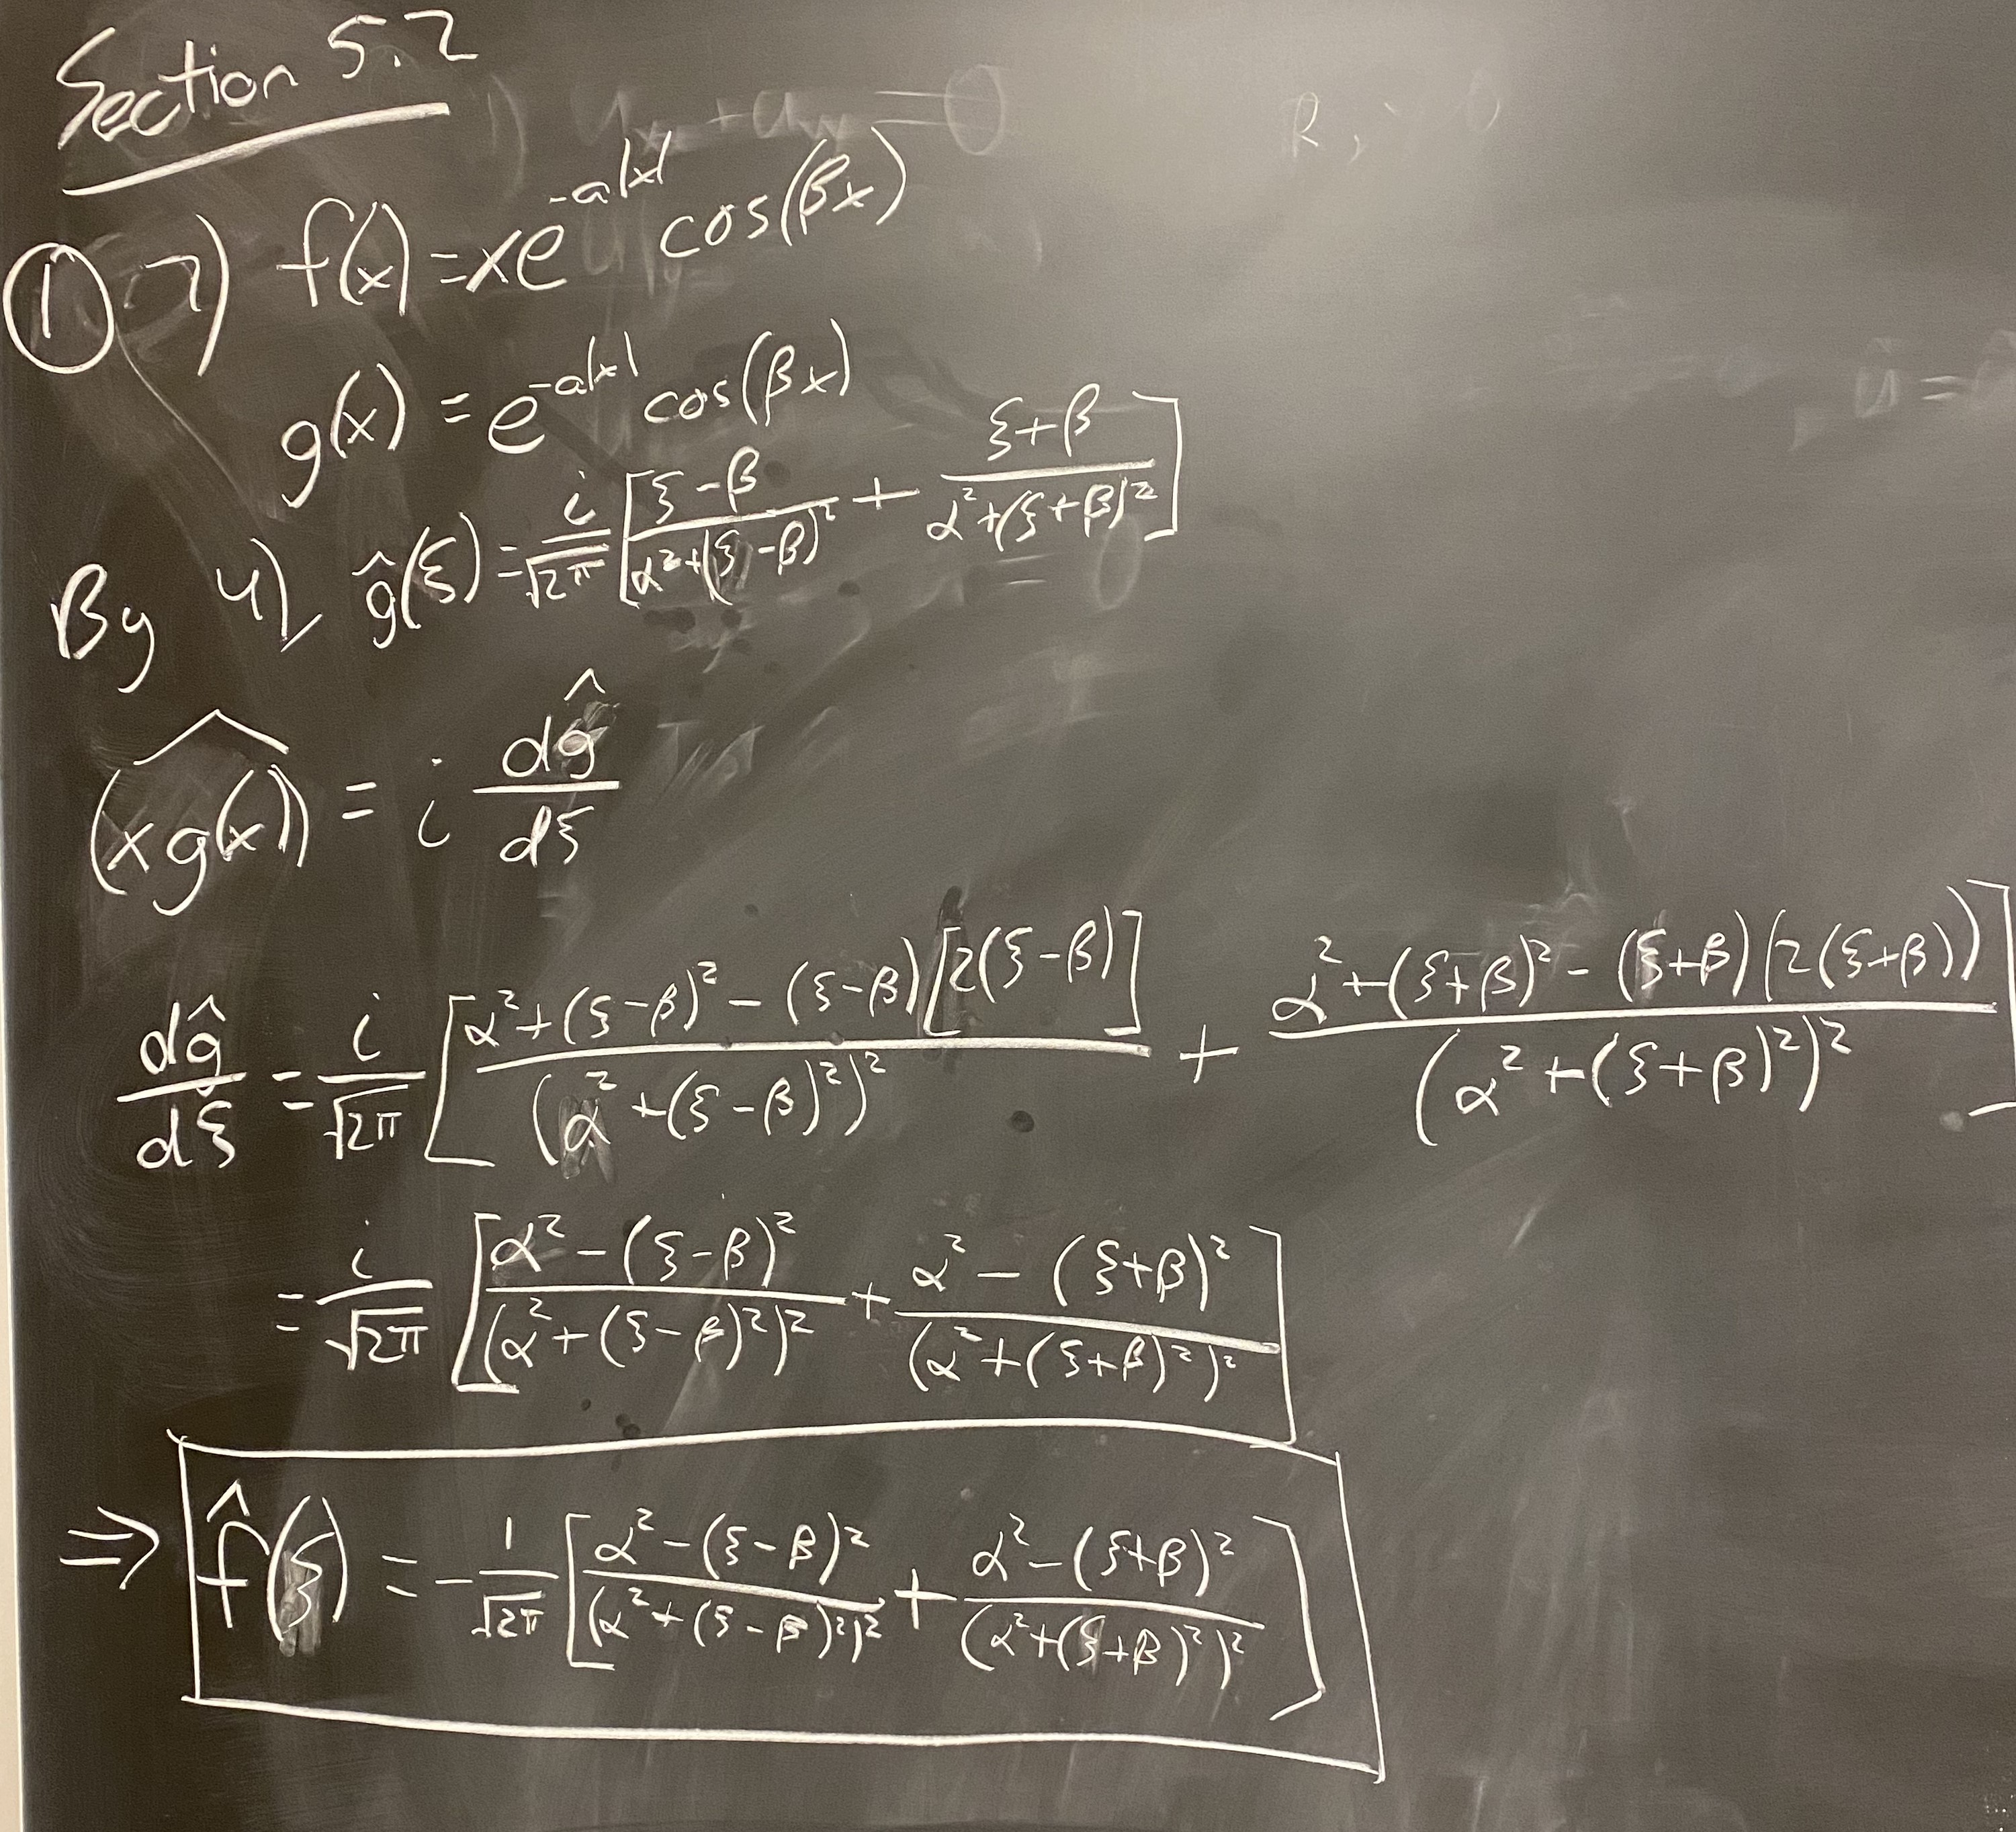 Section 5.2
① 7) f(x) = xe^{-a|x|} cos(βx)
g(x) = e^{-a|x|} cos(βx)
By 4), ĝ(ξ) = i/√2π [ (ξ-β)/(α²+(ξ-β)²) + (ξ+β)/(α²+(ξ+β)²) ]
\widehat{(xg(x))} = i dĝ/dξ
dĝ/dξ = i/√2π [ (α²+(ξ-β)² - (ξ-β)[2(ξ-β)])/(α²+(ξ-β)²)² + (α²+(ξ+β)² - (ξ+β)(2(ξ+β)))/(α²+(ξ+β)²)² ]
= i/√2π [ (α² - (ξ-β)²)/(α²+(ξ-β)²)² + (α² - (ξ+β)²)/(α²+(ξ+β)²)² ]
⇒ f̂(ξ) = -1/√2π [ (α²-(ξ-β)²)/(α²+(ξ-β)²)² + (α²-(ξ+β)²)/(α²+(ξ+β)²)² ]